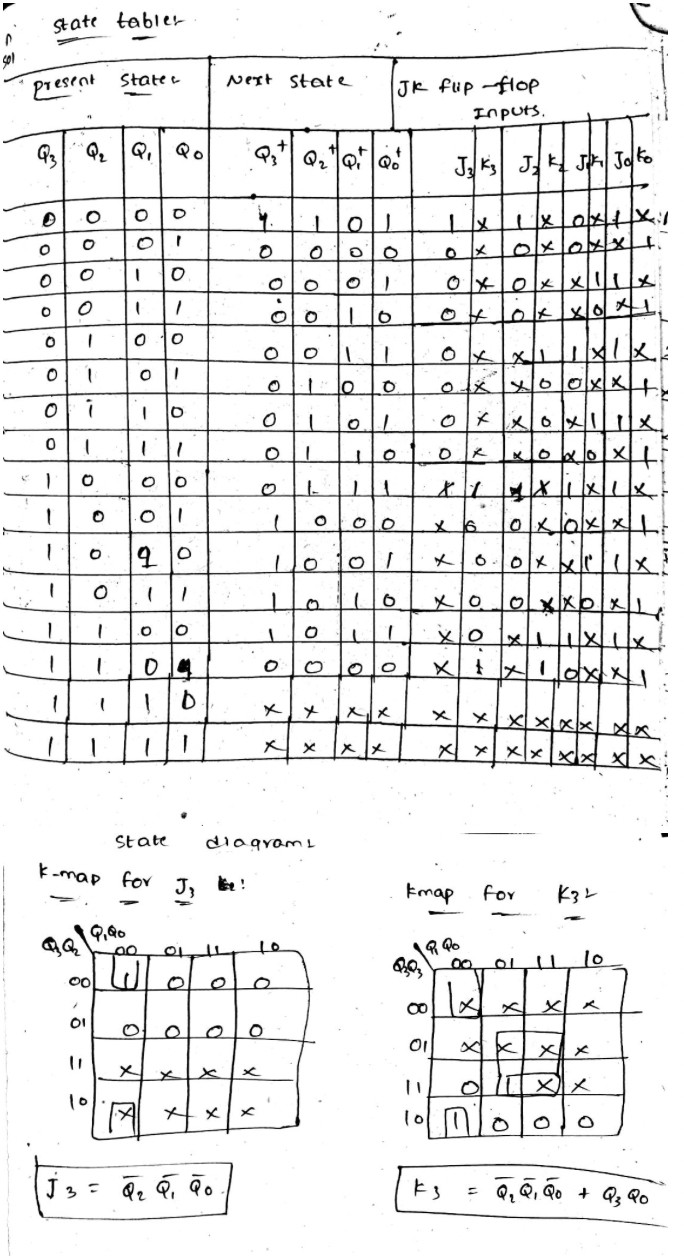 state tables
present states Next state JK flip-flop Inputs.
Q₃ Q₂ Q₁ Q₀ Q₃⁺ Q₂⁺ Q₁⁺ Q₀⁺ J₃ K₃ J₂ K₂ J₁ K₁ J₀ K₀
0 0 0 0 1 1 0 1 1 x 1 x 0 x 1 x
0 0 0 1 0 0 0 0 0 x 0 x 0 x x 1
0 0 1 0 0 0 0 1 0 x 0 x x 1 1 x
0 0 1 1 0 0 1 0 0 x 0 x x 0 x 1
0 1 0 0 0 0 1 1 0 x x 1 1 x 1 x
0 1 0 1 0 1 0 0 0 x x 0 0 x x 1
0 1 1 0 0 1 0 1 0 x x 0 x 1 1 x
0 1 1 1 0 1 1 0 0 x x 0 x 0 x 1
1 0 0 0 0 1 1 1 x 1 1 x 1 x 1 x
1 0 0 1 1 0 0 0 x 0 0 x 0 x x 1
1 0 1 0 1 0 0 1 x 0 0 x x 1 1 x
1 0 1 1 1 0 1 0 x 0 0 x x 0 x 1
1 1 0 0 1 0 1 1 x 0 x 1 1 x 1 x
1 1 0 1 0 0 0 0 x 1 x 1 0 x x 1
1 1 1 0 x x x x x x x x x x x x
1 1 1 1 x x x x x x x x x x x x
state diagrams
K-map for J₃ :
Q₃Q₂ Q₁Q₀
00 01 11 10
00 1 0 0 0
01 0 0 0 0
11 x x x x
10 x x x x
J₃ = Q̅₂ Q̅₁ Q̅₀
Kmap for K₃:
Q₁Q₀
00 01 11 10
00 x x x x
01 x x x x
11 0 1 x x
10 1 0 0 0
K₃ = Q̅₂ Q̅₁ Q̅₀ + Q₃ Q₀